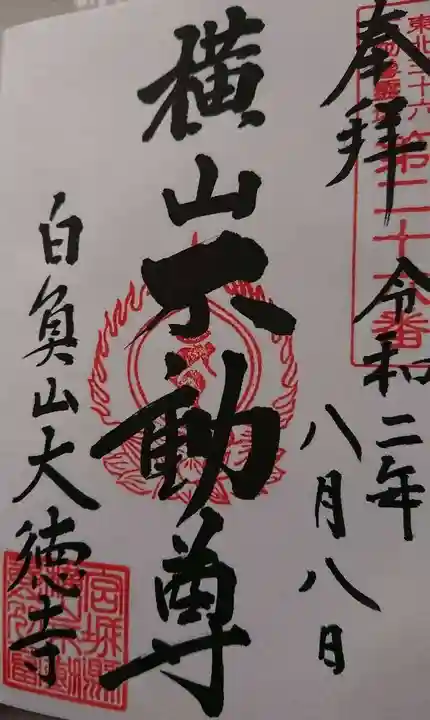 奉拝
令和二年
八月八日
東北三十六
第二十六番
横山不動尊
白魚山大徳寺
宮城縣